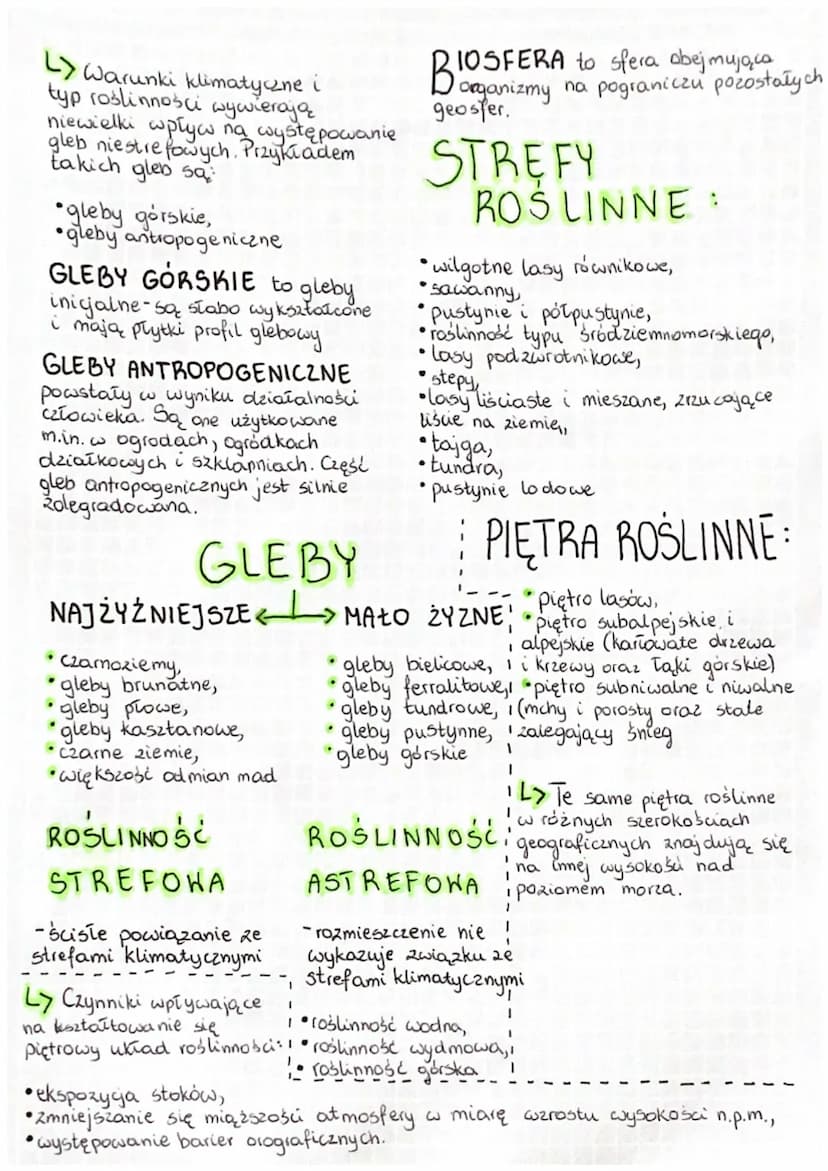 ↳ Warunki klimatyczne i
typ roślinności wywierają
niewielki wpływ na występowanie
gleb niestrefowych. Przykładem
takich gleb są:
•gleby górskie,
•gleby antropogeniczne
GLEBY GÓRSKIE to gleby
inicjalne-są słabo wykształcone
i mają płytki profil glebowy
GLEBY ANTROPOGENICZNE
powstały w wyniku działalności
człowieka. Są one użytkowane
m.in. w ogrodach, ogródkach
działkowych i szklarniach. Część
gleb antropogenicznych jest silnie
zdegradowana.
BIOSFERA to sfera obejmująca
organizmy na pograniczu pozostałych
geosfer.
STREFY
ROŚLINNE:
•wilgotne lasy równikowe,
•sawanny,
•pustynie i półpustynie,
•roślinność typu śródziemnomorskiego,
•lasy podzwrotnikowe,
•stepy,
•lasy liściaste i mieszane, zrzucające
liście na ziemię,
•tajga,
•tundra,
•pustynie lodowe
GLEBY
NAJŻYŹNIEJSZE ← → MAŁO ŻYZNE
•czarnoziemy,
•gleby brunatne,
•gleby płowe,
•gleby kasztanowe,
•czarne ziemie,
•większość odmian mad
•gleby bielicowe,
•gleby ferralitowe,
•gleby tundrowe,
•gleby pustynne,
•gleby górskie
PIĘTRA ROŚLINNE:
•piętro lasów,
•piętro subalpejskie i
alpejskie (karłowate drzewa
i krzewy oraz łąki górskie)
•piętro subniwalne i niwalne
(mchy i porosty oraz stale
zalegający śnieg
↳ Te same piętra roślinne
w różnych szerokościach
geograficznych znajdują się
na innej wysokości nad
poziomem morza.
ROŚLINNOŚĆ
STREFOWA
-ściśle powiązanie ze
strefami klimatycznymi
ROŚLINNOŚĆ
ASTREFOWA
-rozmieszczenie nie
wykazuje związku ze
strefami klimatycznymi
•roślinność wodna,
•roślinność wydmowa,
•roślinność górska
↳ Czynniki wpływające
na kształtowanie się
piętrowy układ roślinności:
•ekspozycja stoków,
•zmniejszanie się miąższości atmosfery w miarę wzrostu wysokości n.p.m.,
•występowanie barier orograficznych.